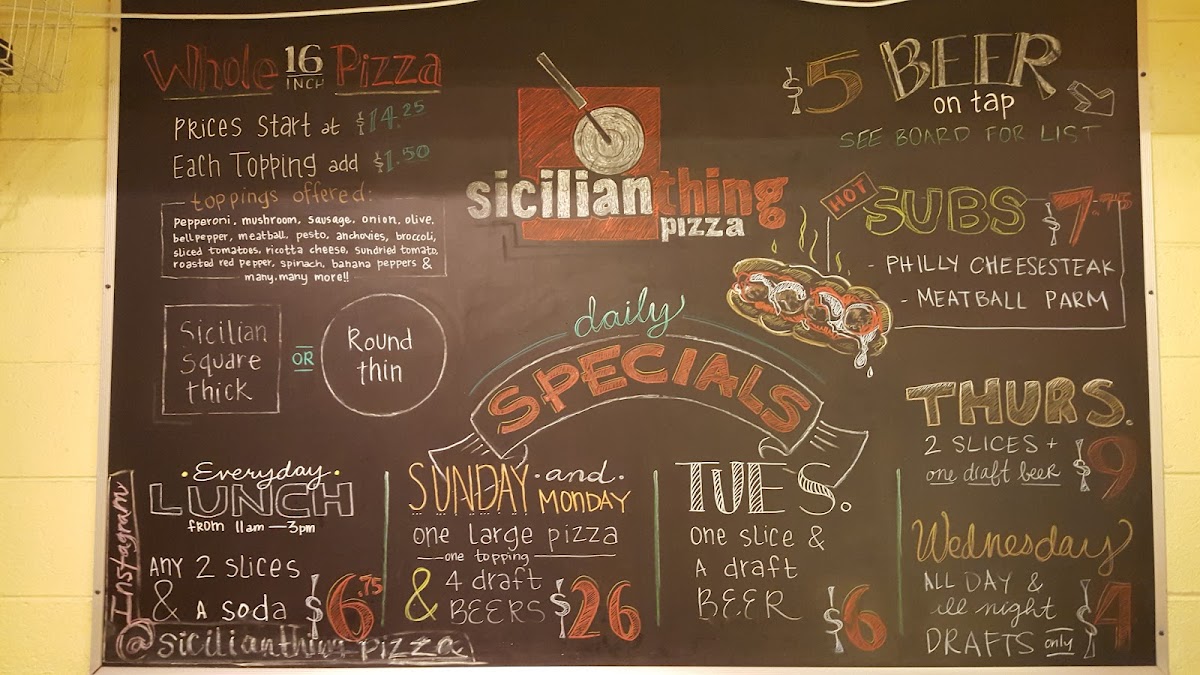 Whole 16 INCH Pizza
Prices Start at $14.25
Each Topping add $1.50
toppings offered:
Pepperoni, mushroom, sausage, onion, olive,
bell pepper, meatball, pesto, anchovies, broccoli,
sliced tomatoes, ricotta cheese, sundried tomato,
roasted red pepper, spinach, banana peppers &
many, many more!!
Sicilian
Square
thick
OR
Round
thin
sicilianthing
pizza
$5 BEER
on tap
SEE BOARD FOR LIST
HOT SUBS $7.75
- PHILLY CHEESESTEAK
- MEATBALL PARM
daily
SPECIALS
Everyday
LUNCH
from 11am — 3pm
ANY 2 slices
& A soda $6.75
SUNDAY and
MONDAY
one large pizza
one topping
& 4 draft
BEERS $26
TUES.
one slice &
A draft
BEER $6
THURS.
2 SLICES +
one draft beer $9
Wednesday
ALL DAY &
all night
DRAFTS only $4
Instagram
@sicilianthingpizza